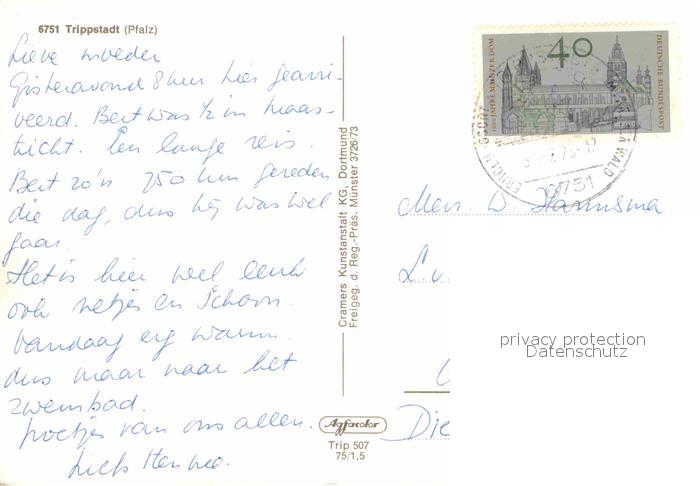 6751 Trippstadt (Pfalz)
Lieve moeder
Gisteravond 8 uur hier gearri-
veerd. Bert was ½ in Maas-
tricht. Een lange reis.
Bert zo'n 750 km gereden
die dag, dus hij was wel
gaar.
Het is hier wel leuk
ook netjes en schoon.
Vandaag erg warm.
dus maar naar het
zwembad.
Poetjes van ons allen.
Liefs
Cramers Kunstanstalt KG, Dortmund
Freigeg. d. Reg.-Präs. Münster 3726/73
Agfacolor
Trip 507
75/1,5
40
1000 JAHRE MAINZER DOM
DEUTSCHE BUNDESPOST
6751
Mevr. D. Harmsma
privacy protection
Datenschutz
Die